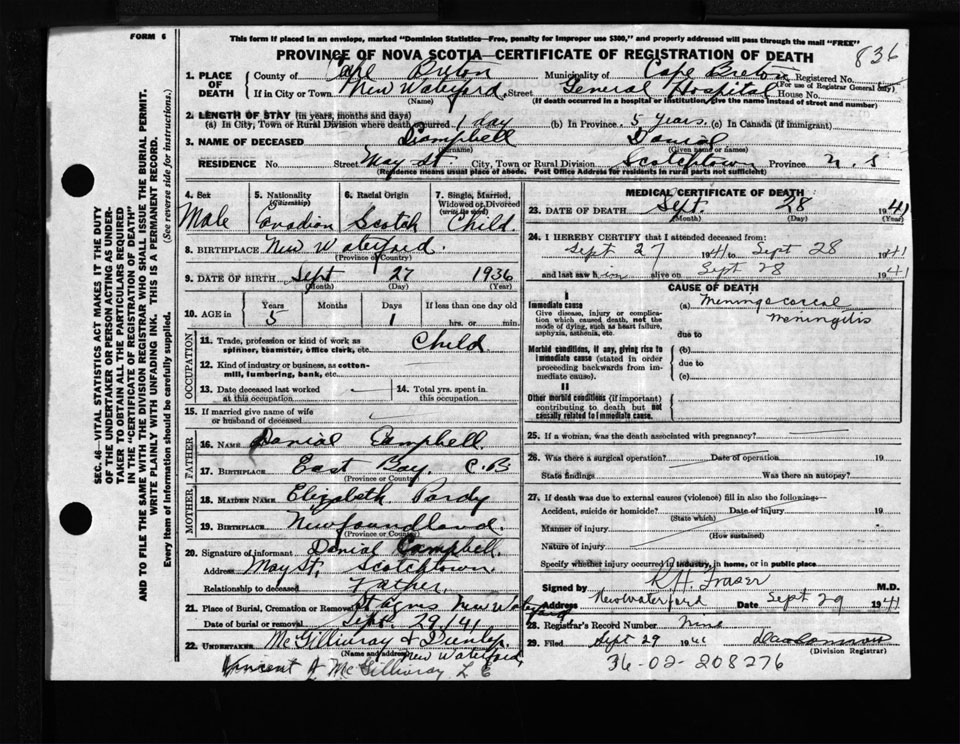 FORM 6
This form if placed in an envelope, marked "Dominion Statistics—Free, penalty for improper use $300," and properly addressed will pass through the mail "FREE"
PROVINCE OF NOVA SCOTIA—CERTIFICATE OF REGISTRATION OF DEATH
836
1. PLACE OF DEATH
County of Cape Breton Municipality of Cape Breton Registered No.
(For use of Registrar General only)
If in City or Town New Waterford Street General Hospital House No.
(Name) (If death occurred in a hospital or institution, give the name instead of street and number)
2. LENGTH OF STAY (in years, months and days)
(a) In City, Town or Rural Division where death occurred 1 day (b) In Province 5 years (c) In Canada (if immigrant)
3. NAME OF DECEASED Campbell Danial
(Surname) (Given name or names)
RESIDENCE No. Street May St. City, Town or Rural Division Scotchtown Province N. S
(Residence means usual place of abode. Post Office Address for residents in rural parts not sufficient)
SEC. 46—VITAL STATISTICS ACT MAKES IT THE DUTY
OF THE UNDERTAKER OR PERSON ACTING AS UNDER-
TAKER TO OBTAIN ALL THE PARTICULARS REQUIRED
IN THE "CERTIFICATE OF REGISTRATION OF DEATH"
AND TO FILE THE SAME WITH THE DIVISION REGISTRAR WHO SHALL ISSUE THE BURIAL PERMIT.
WRITE PLAINLY WITH UNFADING INK. THIS IS A PERMANENT RECORD.
Every item of Information should be carefully supplied. (See reverse side for instructions.)
4. Sex
Male
5. Nationality
(Citizenship)
Canadian
6. Racial Origin
Scotch
7. Single, Married,
Widowed or Divorced
(write the word)
Child.
8. BIRTHPLACE New Waterford.
(Province or Country)
9. DATE OF BIRTH Sept 27 1936
(Month) (Day) (Year)
10. AGE in
Years Months Days If less than one day old
5 1 hrs. or min.
OCCUPATION
11. Trade, profession or kind of work as
spinner, teamster, office clerk, etc. Child
12. Kind of industry or business, as cotton-
mill, lumbering, bank, etc.
13. Date deceased last worked
at this occupation
14. Total yrs. spent in
this occupation
15. If married give name of wife
or husband of deceased
FATHER
16. NAME Danial Campbell
17. BIRTHPLACE East Bay, C.B
(Province or Country)
MOTHER
18. MAIDEN NAME Elizabeth Pardy
19. BIRTHPLACE Newfoundland.
(Province or Country)
20. Signature of informant Danial Campbell.
Address May St, Scotchtown.
Relationship to deceased Father.
21. Place of Burial, Cremation or Removal St Agnes New Waterford
Date of burial or removal Sept. 29/41
22. UNDERTAKER McGillivray & Dunlop.
(Name and address) New Waterford.
Vincent J. McGillivray L E
MEDICAL CERTIFICATE OF DEATH
23. DATE OF DEATH Sept. 28 1941
(Month) (Day) (Year)
24. I HEREBY CERTIFY that I attended deceased from:
Sept 27 1941 to Sept 28 1941
and last saw him alive on Sept 28 1941
CAUSE OF DEATH
I
Immediate cause
Give disease, injury or complica-
tion which caused death, not the
mode of dying, such as heart failure,
asphyxia, asthenia, etc.
(a) Meningococcal
Meningitis
due to
Morbid conditions, if any, giving rise to
immediate cause (stated in order
proceeding backwards from im-
mediate cause).
(b)
due to
(c)
II
Other morbid conditions (if important)
contributing to death but not
causally related to immediate cause.
25. If a woman, was the death associated with pregnancy?
26. Was there a surgical operation? Date of operation 19
State findings Was there an autopsy?
27. If death was due to external causes (violence) fill in also the following:
Accident, suicide or homicide? Date of injury 19
(State which)
Manner of injury
(How sustained)
Nature of injury
Specify whether injury occurred in industry, in home, or in public place
Signed by R H. Fraser M.D.
Address New Waterford Date Sept 29 1941
28. Registrar's Record Number
29. Filed Sept 29 1941
(Division Registrar)
36-02-208276